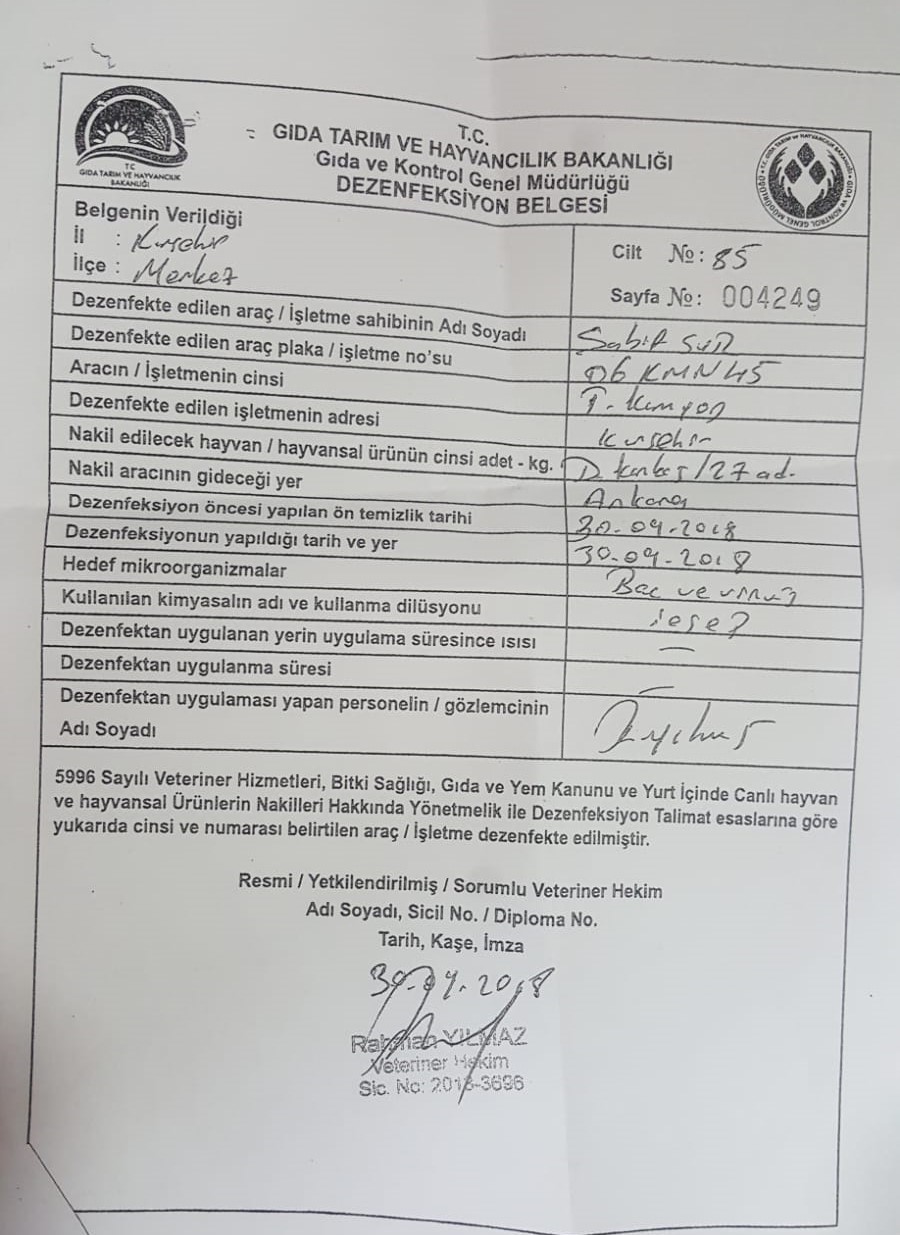 T.C.
GIDA TARIM VE HAYVANCILIK BAKANLIĞI
Gıda ve Kontrol Genel Müdürlüğü
DEZENFEKSİYON BELGESİ
TC
GIDA TARIM VE HAYVANCILIK
BAKANLIĞI
Belgenin Verildiği
İl : Kırşehir
İlçe : Merkez
Cilt No: 85
Sayfa No: 004249
Dezenfekte edilen araç / İşletme sahibinin Adı Soyadı Sabit
Dezenfekte edilen araç plaka / işletme no'su 06 KMN 45
Aracın / İşletmenin cinsi T. Kamyon
Dezenfekte edilen işletmenin adresi Kırşehir
Nakil edilecek hayvan / hayvansal ürünün cinsi adet - kg. 27 ad.
Nakil aracının gideceği yer Ankara
Dezenfeksiyon öncesi yapılan ön temizlik tarihi 30.04.2018
Dezenfeksiyonun yapıldığı tarih ve yer 30.04.2018
Hedef mikroorganizmalar Bac ve virüs
Kullanılan kimyasalın adı ve kullanma dilüsyonu
Dezenfektan uygulanan yerin uygulama süresince ısısı —
Dezenfektan uygulanma süresi —
Dezenfektan uygulaması yapan personelin / gözlemcinin
Adı Soyadı
5996 Sayılı Veteriner Hizmetleri, Bitki Sağlığı, Gıda ve Yem Kanunu ve Yurt İçinde Canlı hayvan
ve hayvansal Ürünlerin Nakilleri Hakkında Yönetmelik ile Dezenfeksiyon Talimat esaslarına göre
yukarıda cinsi ve numarası belirtilen araç / İşletme dezenfekte edilmiştir.
Resmi / Yetkilendirilmiş / Sorumlu Veteriner Hekim
Adı Soyadı, Sicil No. / Diploma No.
Tarih, Kaşe, İmza
30.04.2018
YILMAZ
Veteriner Hekim
Sic. No: 2018-3696